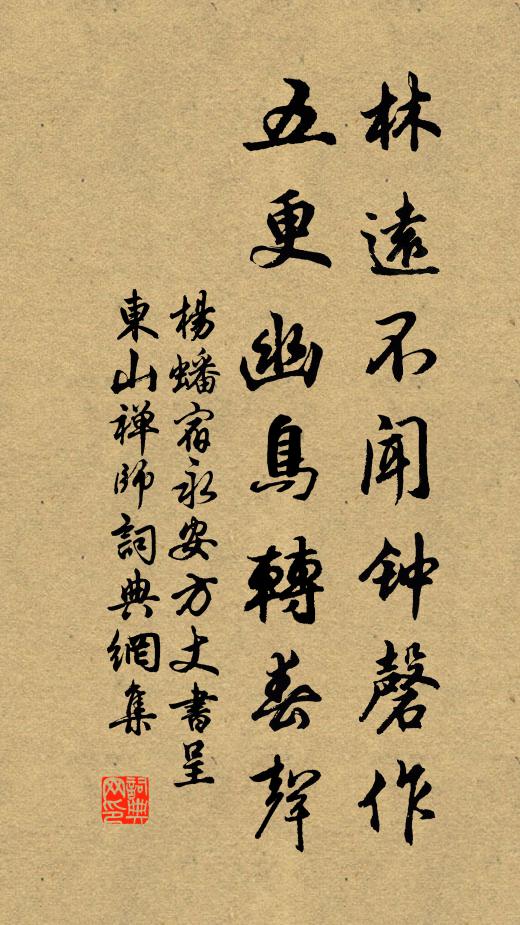 林遠不闻钟磬作
五更幽鳥轉春聲
楊蟠宿永安方丈書呈
東山禅師詞典網集
詞典网印